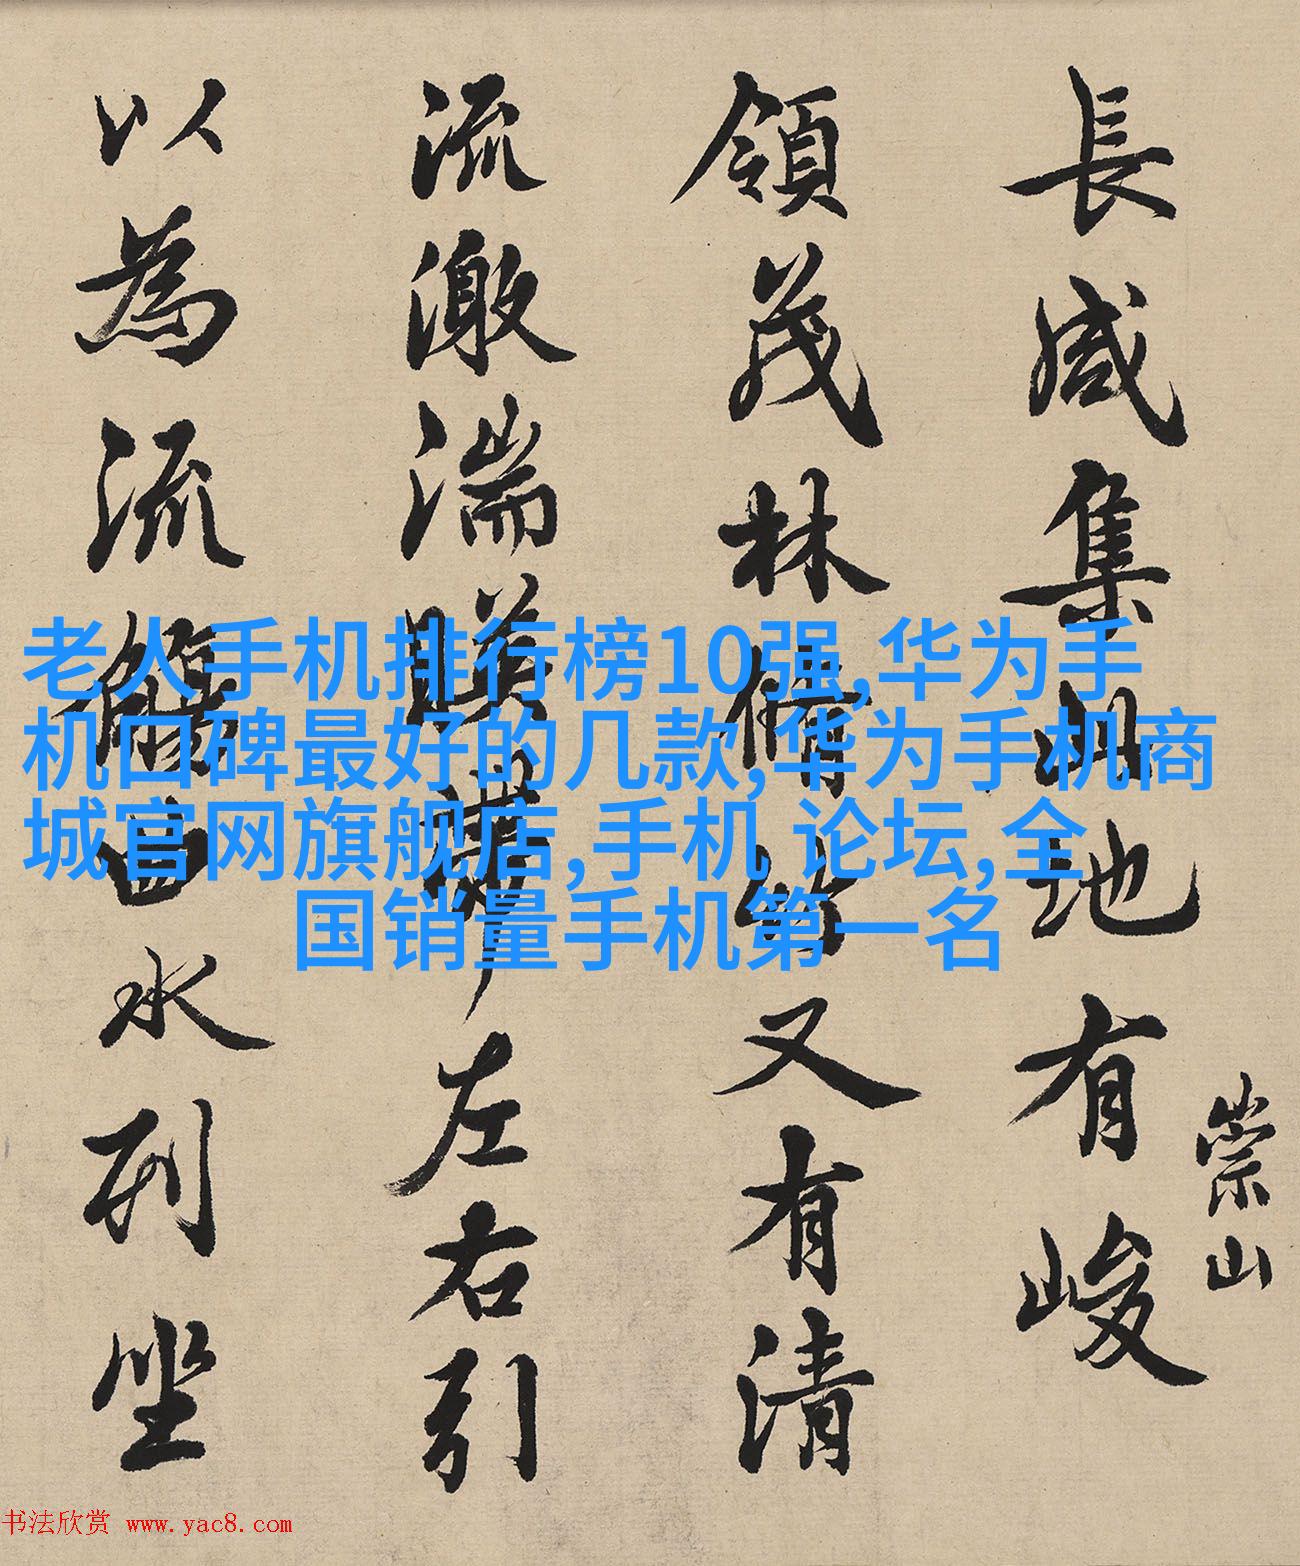 長咸集此地有峻
崇山
領茂林脩竹又有清
流激湍暎帶左右引
以為流觴曲水列坐
老人手机排行榜10强,华为手
机口碑最好的几款,华为手机商
城官网旗舰店,手机 论坛,全
国销量手机第一名
书法欣赏 www.yac8.com